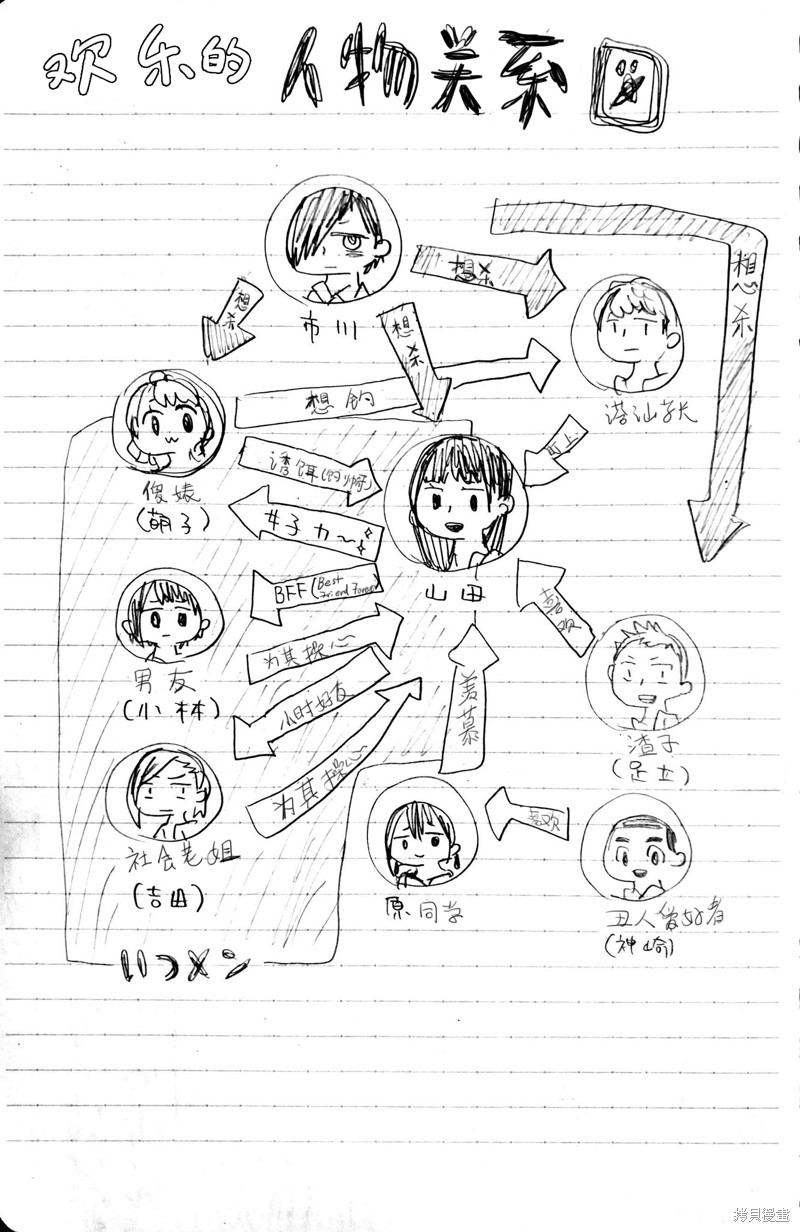 欢乐的人物关系図
想杀
想杀
想杀
想杀
市川
搭讪学长
想钓
盯上
诱饵(钓帅哥)
女子力~
傻婊
(萌子)
山田
BFF(Best Friend Forever)
喜欢
男友
(小林)
为其操心
小时好友
羡慕
渣子
(足立)
为其操心
社会老姐
(吉田)
喜欢
原同学
丑人爱好者
(神崎)
いつメン
拷貝漫畫